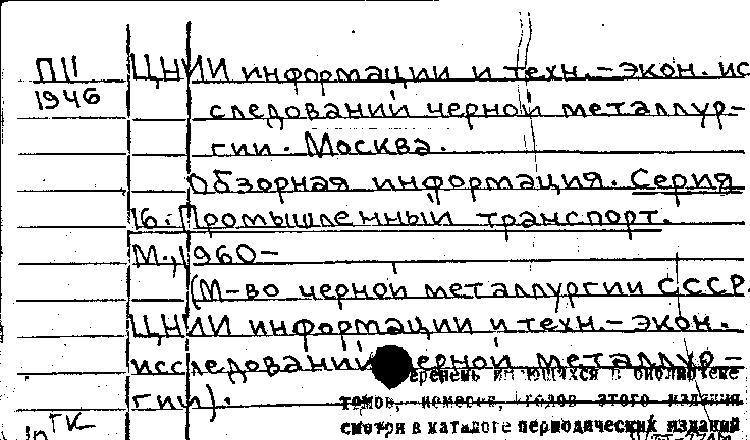 ПII ЦНИИ информации и техн.-экон. ис
1946 следований черной металлур-
гии. Москва.
Обзорная информация. Серия
16. Промышленный транспорт.
М., 1960-
(М-во черной металлургии СССР.
ЦНИИ информации и техн.-экон.
исследований черной металлур-
гии).
перечень имеющихся в библиотеке
томов, номеров, годов этого издания
смотри в каталоге периодических изданий